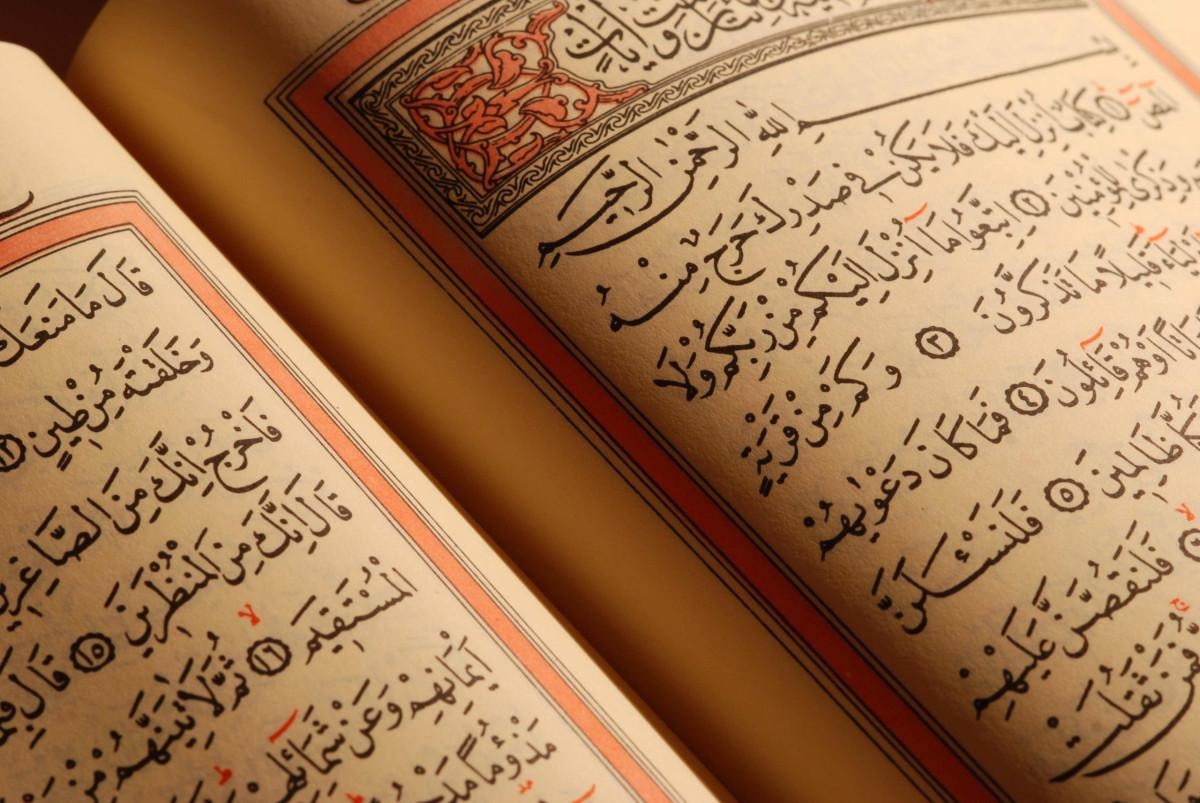 بِسْمِ اللّٰهِ الرَّحْمٰنِ الرَّحِيمِ
الٓمٓصٓ ۝١ كِتَابٌ اُنْزِلَ اِلَيْكَ فَلَا يَكُنْ فِى صَدْرِكَ حَرَجٌ مِنْهُ
وَذِكْرٰى لِلْمُؤْمِنِينَ ۝٢ اِتَّبِعُوا مَٓا اُنْزِلَ اِلَيْكُمْ مِنْ رَبِّكُمْ وَلَا
قَلِيلًا مَا تَذَكَّرُونَ ۝٣ وَكَمْ مِنْ قَرْيَةٍ
اَوْ هُمْ قَٓائِلُونَ ۝٤ فَمَا كَانَ دَعْوٰيهُمْ
ظَالِمِينَ ۝٥ فَلَنَسْـَٔلَنَّ
فَلَنَقُصَّنَّ عَلَيْهِمْ
فَمَنْ ثَقُلَتْ
قَالَ مَا مَنَعَكَ
وَخَلَقْتَهُ مِنْ طِينٍ ۝١٢
فَاخْرُجْ اِنَّكَ مِنَ الصَّاغِرِينَ
قَالَ اِنَّكَ مِنَ الْمُنْظَرِينَ ۝١٥ قَالَ فَبِمَا
الْمُسْتَقِيمَ ۝١٦ ثُمَّ لَاٰتِيَنَّهُمْ مِنْ
اَيْمَانِهِمْ وَعَنْ شَمَٓائِلِهِمْ
مَذْؤُمًا